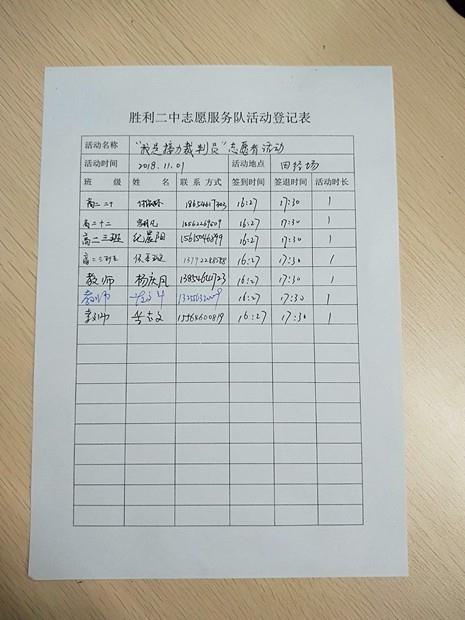 胜利二中志愿服务队活动登记表
活动名称 "我是接力裁判员"志愿者活动
活动时间 2018.11.01 活动地点 田径场
班 级 姓 名 联系方式 签到时间 签退时间 活动时长
高二二十 16:27 17:30 1
高二十二 16:27 17:30 1
高二三班 晨阳 16:27 17:30 1
高二三班 16:27 17:30 1
教师 杨庆凤 16:27 17:30 1
教师 16:27 17:30 1
教师 岳志文 15964600819 16:27 17:30 1